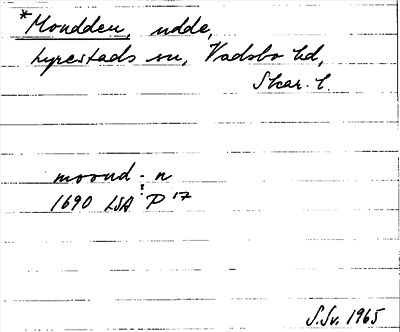 *Moudden, udde,
Lyrestads sn, Vadsbo hd,
Skar. l.
mooud - n
1690 LSA P 17
S.Sv. 1965